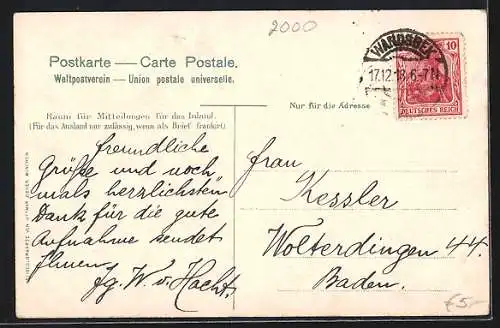 2000
Postkarte — Carte Postale.
Weltpostverein — Union postale universelle.
WANDSBEK
17.12.18. 6-7 N
10
DEUTSCHES REICH
Raum für Mitteilungen für das Inland.
(Für das Ausland nur zulässig, wenn als Brief frankirt)
Nur für die Adresse
Freundliche
Grüße und noch
mals herzlichsten
Dank für die gute
Aufnahme sendet
Ihnen
Fg. W. v. Hacht.
Frau
Kessler
Wolterdingen 44.
Baden.
€5,-